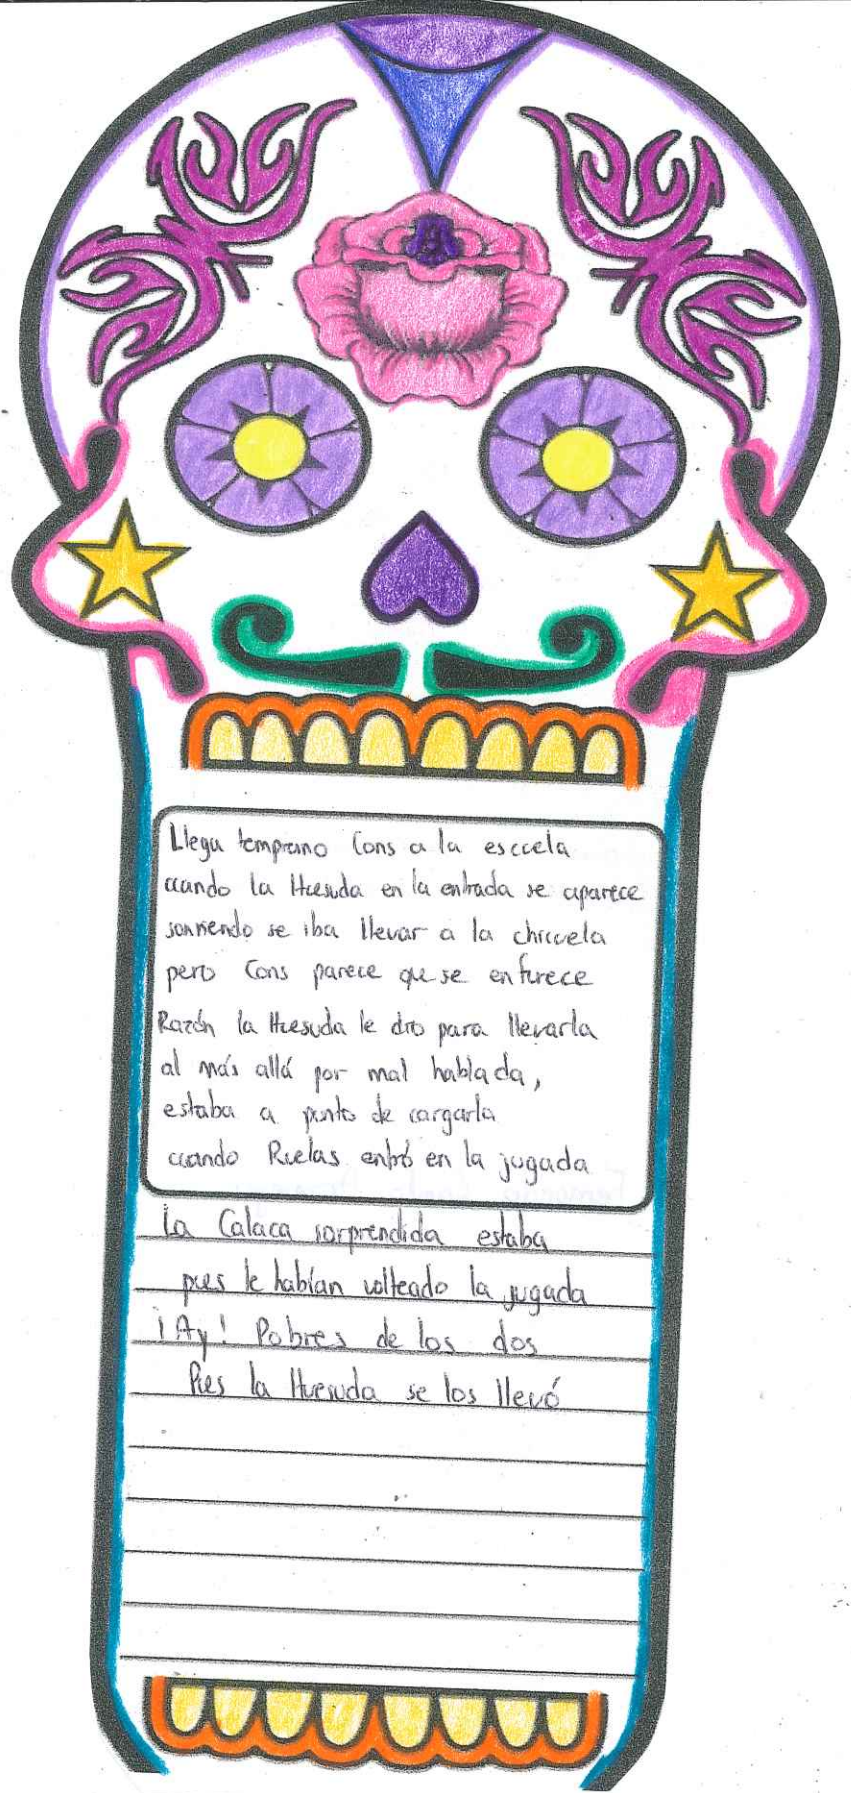 Llega temprano Cons a la escuela
cuando la Huesuda en la entrada se aparece
sonriendo se iba llevar a la chicuela
pero Cons parece que se enfurece
Razón la Huesuda le dio para llevarla
al más allá por mal hablada,
estaba a punto de cargarla
cuando Ruelas entró en la jugada
La Calaca sorprendida estaba
pues le habían volteado la jugada
¡Ay! Pobres de los dos
Pues la Huesuda se los llevó